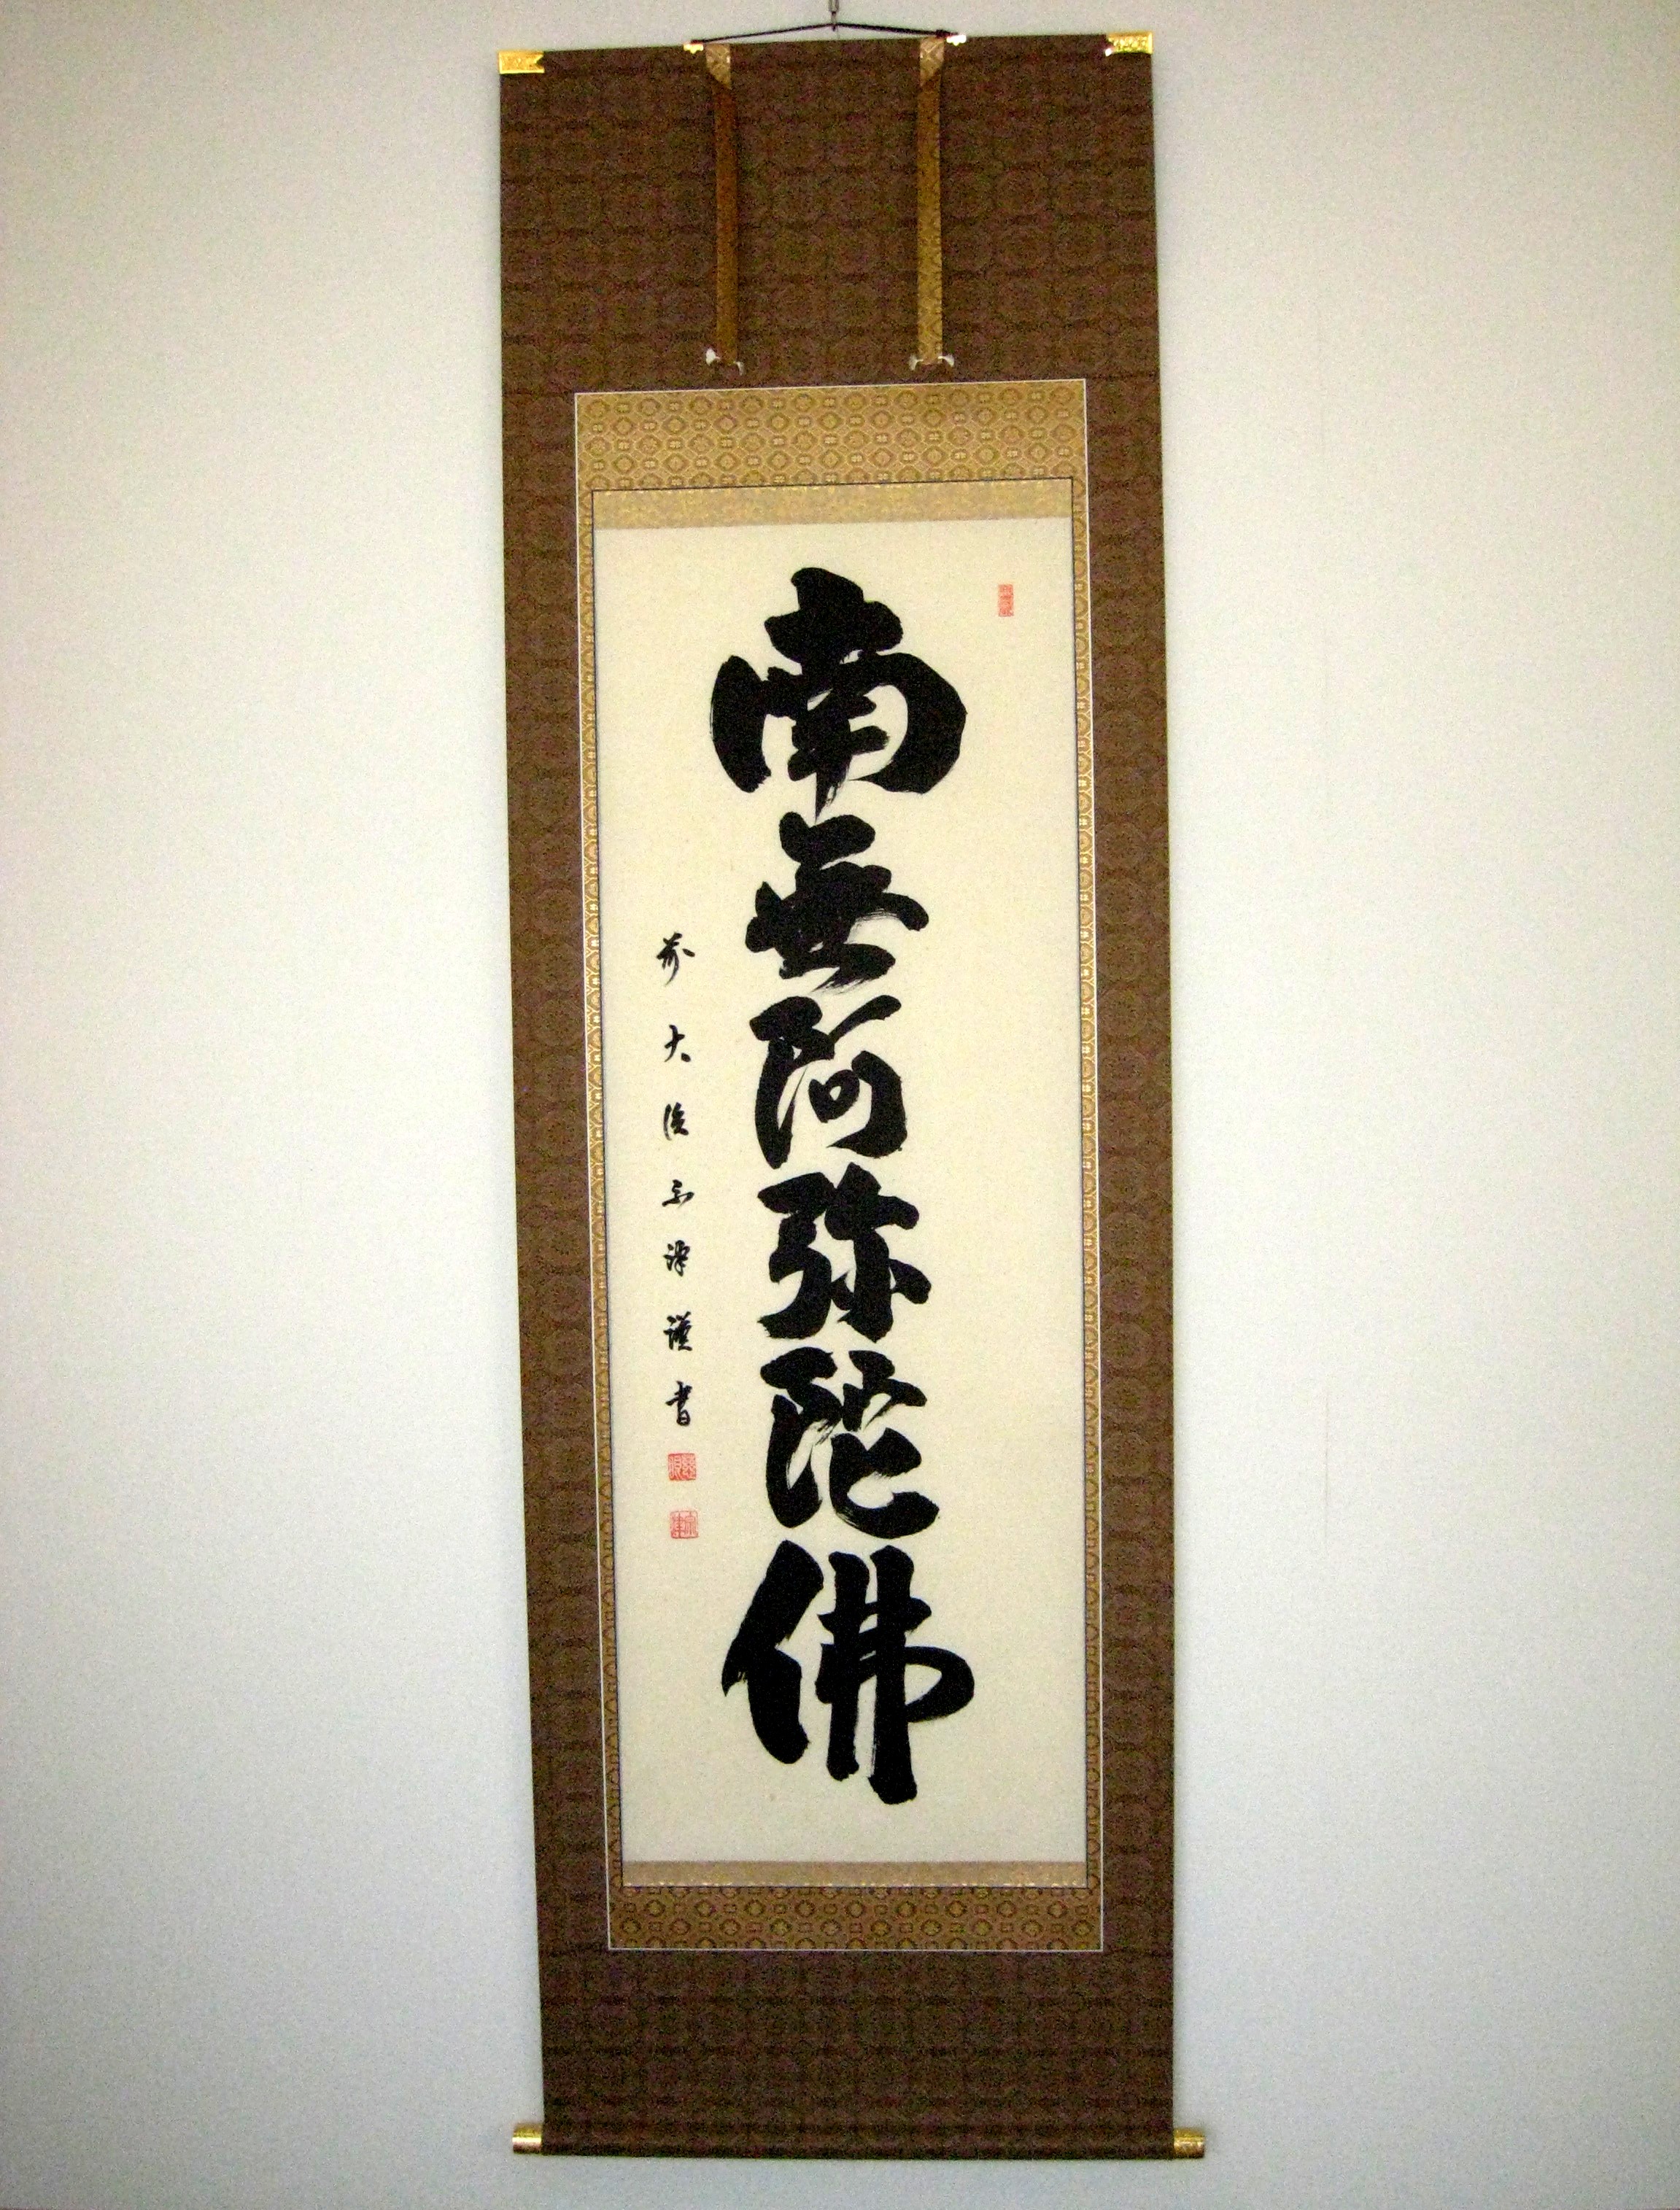 南無阿弥陀佛
前大徳
謹書